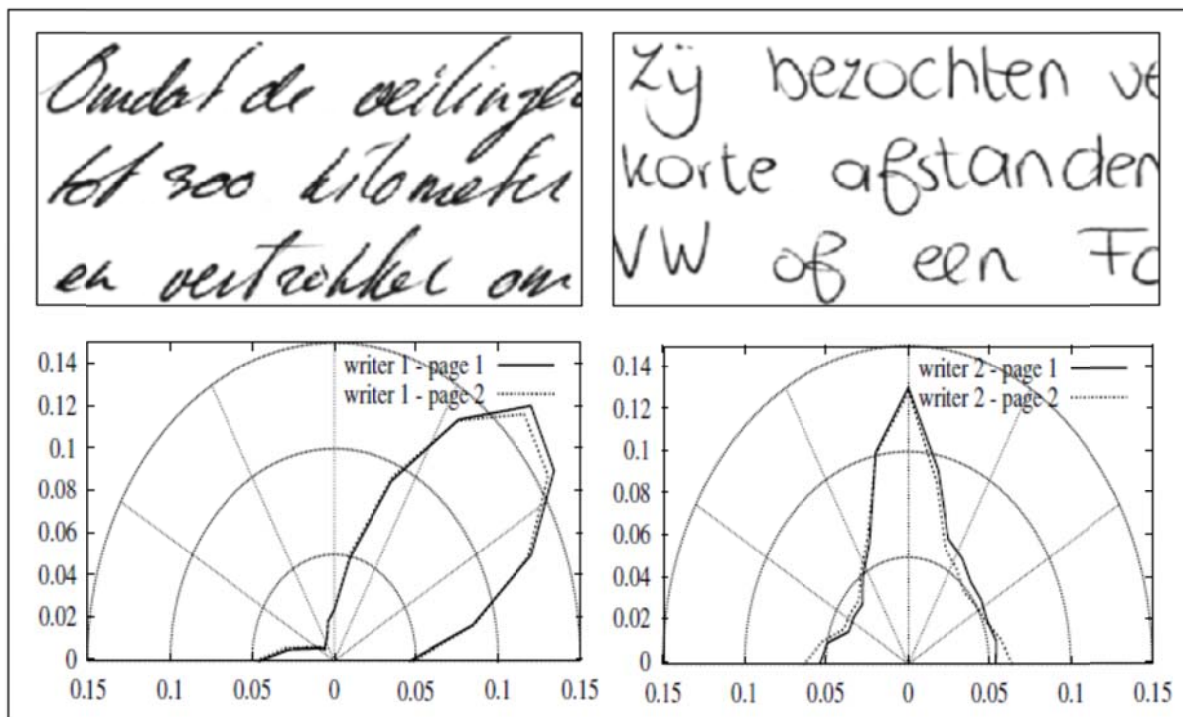 Omdat de veilingen
tot 300 kilometer
en vertrekken om
Zij bezochten ve
korte afstanden
VW of een Fo
writer 1 - page 1
writer 1 - page 2
0.14
0.12
0.1
0.08
0.06
0.04
0.02
0
0.15 0.1 0.05 0 0.05 0.1 0.15
writer 2 - page 1
writer 2 - page 2
0.14
0.12
0.1
0.08
0.06
0.04
0.02
0
0.15 0.1 0.05 0 0.05 0.1 0.15